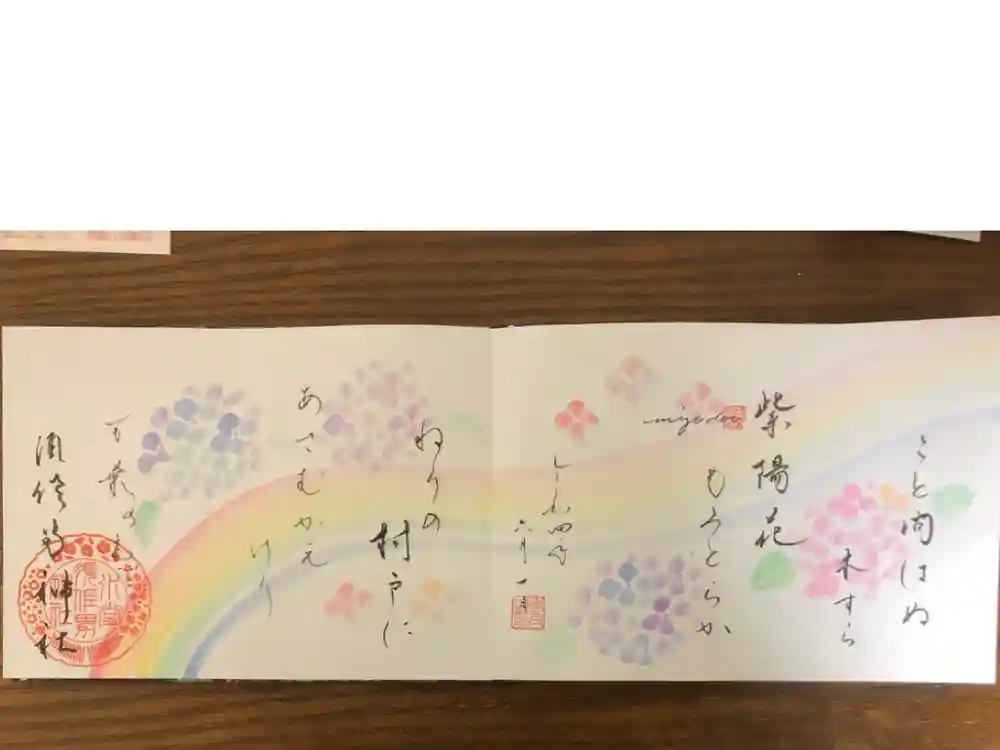 こと問はぬ
木すら
紫陽花
もろとらか
四年
六月一日
ねりの
村戸に
あさむかえ
けり
万葉の
神社